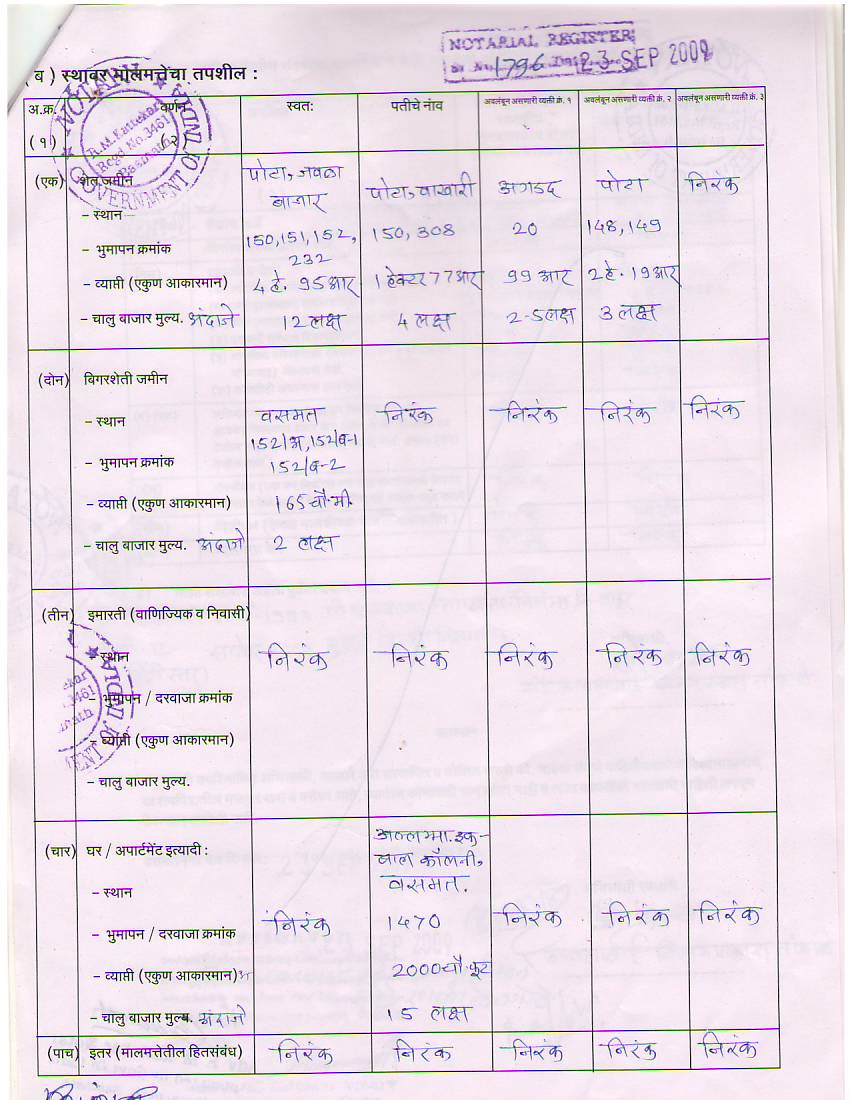 NOTARIAL REGISTER
Sr No. 1796 Date 23 SEP 2009
( ब ) स्थावर मालमत्तेचा तपशील :
अ.क्र. वर्णन स्वत: पतीचे नांव अवलंबून असणारी व्यक्ती क्रं. १ अवलंबून असणारी व्यक्ती क्रं. २ अवलंबून असणारी व्यक्ती क्रं. ३
( १) (२)
NOTARY
R.M. Kattekar
Regd No. 3461
Basmath
GOVERNMENT OF INDIA
(एक) शेत जमीन पोटा, जवळा
बाजार पोटा, वाखारी अगडद पोटा निरंक
– स्थान
– भुमापन क्रमांक 150,151,152, 150, 308 20 148,149
232
– व्याप्ती (एकुण आकारमान) 4 हे. 95 आर 1 हेक्टर 77 आर 99 आर 2 हे. 19 आर
– चालु बाजार मुल्य. अंदाजे 12 लक्ष 4 लक्ष 2-5 लक्ष 3 लक्ष
(दोन) बिगरशेती जमीन
– स्थान वसमत निरंक निरंक निरंक निरंक
152/अ, 152/ब-1
– भुमापन क्रमांक 152/ब-2
– व्याप्ती (एकुण आकारमान) 165 चौ.मी.
– चालु बाजार मुल्य. अंदाजे 2 लक्ष
(तीन) इमारती (वाणिज्यिक व निवासी)
– स्थान निरंक निरंक निरंक निरंक निरंक
– भुमापन / दरवाजा क्रमांक
– व्याप्ती (एकुण आकारमान)
– चालु बाजार मुल्य.
(चार) घर / अपार्टमेंट इत्यादी : अल्लामा. इक-
बाल कॉलनी,
– स्थान वसमत.
– भुमापन / दरवाजा क्रमांक निरंक 1470 निरंक निरंक निरंक
– व्याप्ती (एकुण आकारमान) 2000 चौ. फूट
– चालु बाजार मुल्य. अंदाजे 15 लक्ष
(पाच) इतर (मालमत्तेतील हितसंबंध) निरंक निरंक निरंक निरंक निरंक